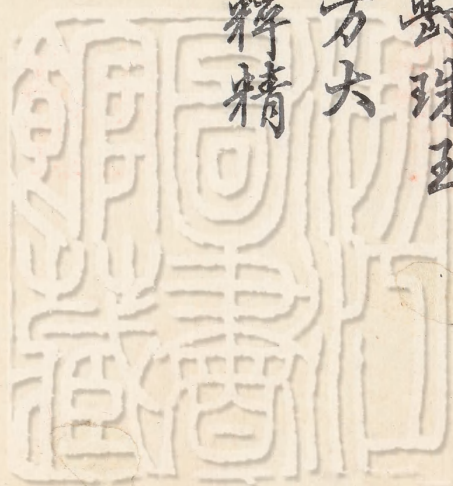 珠王
方大
粹精
浙江
圖書
館藏